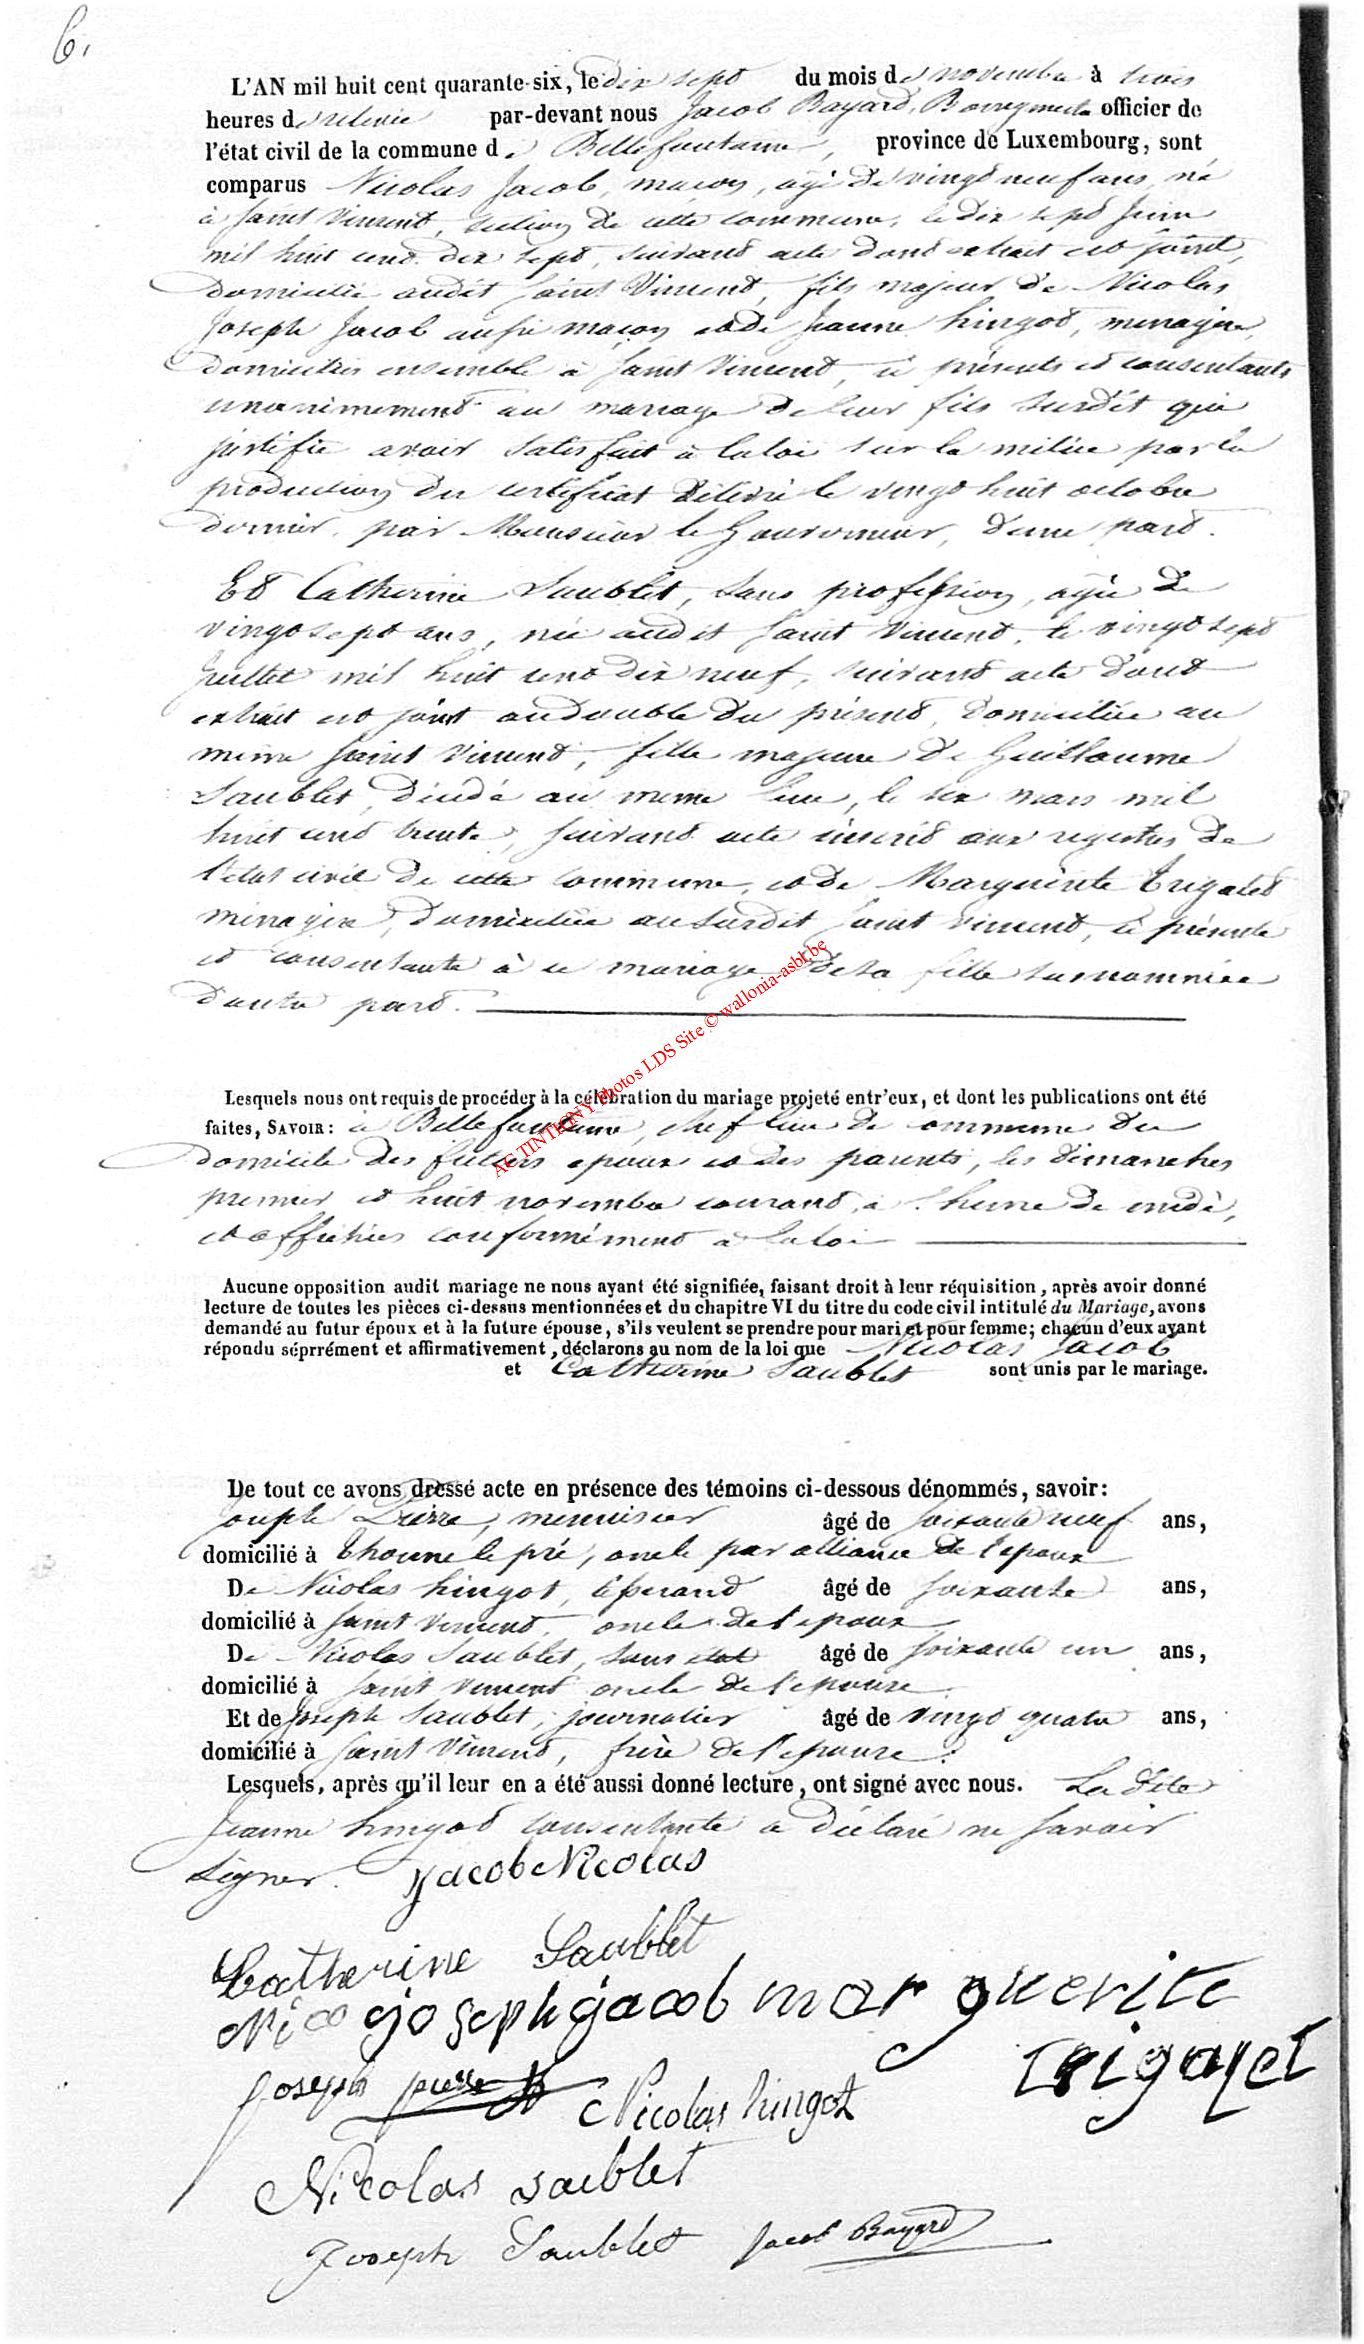 6.
L'AN mil huit cent quarante-six, le dix sept du mois de novembre à trois
heures de relevée par-devant nous Jacob Bayard, Bourgmestre officier de
l'état civil de la commune de Bellefontaine, province de Luxembourg, sont
comparus Nicolas Jacob, maçon, âgé de vingt neuf ans, né
à Saint Vincent, section de cette commune, le dix sept Juin
mil huit cent dix sept, suivant acte dont extrait est joint,
domicilié audit Saint Vincent, fils majeur de Nicolas
Joseph Jacob aussi maçon et de Jeanne hingot, menagère,
domiciliés ensemble à Saint Vincent, ci présents et consentants
unanimement au mariage de leur fils surdit qui
justifie avoir satisfait à la loi sur la milice par la
production du certificat délivré le vingt huit octobre
dernier, par Monsieur le Gouverneur, d'une part.
Et Catherine Saublet, sans profession, agée de
vingt sept ans, née audit Saint Vincent, le vingt sept
Juillet mil huit cent dix neuf, suivant acte dont
extrait est joint au double du présent, domiciliée au
même Saint Vincent, fille majeure de Guillaume
Saublet, décédé au meme lieu, le six mars mil
huit cent trente, suivant acte inscrit aux registres de
l'état civil de cette commune, et de Marguerite Trigalet
ménagère, domiciliée au surdit Saint Vincent, ci présente
et consentante à ce mariage de sa fille susnommée
d'autre part.
AC TINTIGNY Photos LDS Site © wallonia-asbl.be
Lesquels nous ont requis de procéder à la célébration du mariage projeté entr'eux, et dont les publications ont été
faites, SAVOIR: à Bellefontaine, chef lieu de commune du
domicile des futurs epoux et des parents, les dimanches
premier et huit novembre courant, à l'heure de midi,
et affichées conformément à la loi
Aucune opposition audit mariage ne nous ayant été signifiée, faisant droit à leur réquisition, après avoir donné
lecture de toutes les pièces ci-dessus mentionnées et du chapitre VI du titre du code civil intitulé du Mariage, avons
demandé au futur époux et à la future épouse, s'ils veulent se prendre pour mari et pour femme; chacun d'eux ayant
répondu séprrément et affirmativement, déclarons au nom de la loi que Nicolas Jacob
et Catherine Saublet sont unis par le mariage.
De tout ce avons dressé acte en présence des témoins ci-dessous dénommés, savoir:
Joseph Pierre, menuisier âgé de soixante neuf ans,
domicilié à thonne le pré, oncle par alliance de l'epoux
De Nicolas hingot, tisserand âgé de soixante ans,
domicilié à Saint Vincent, oncle de l'epoux
De Nicolas Saublet, sans état âgé de soixante un ans,
domicilié à Saint Vincent oncle de l'epouse.
Et de Joseph Saublet, journalier âgé de vingt quatre ans,
domicilié à Saint Vincent, frère de l'epouse.
Lesquels, après qu'il leur en a été aussi donné lecture, ont signé avec nous. La dite
Jeanne hingot consentante a déclaré ne savoir
signer. Jacob Nicolas
Catherine Saublet
Nico joseph jacob marguerite
trigalet
Joseph pierre Nicolas hingot
Nicolas saublet
Joseph Saublet Jacob Bayard